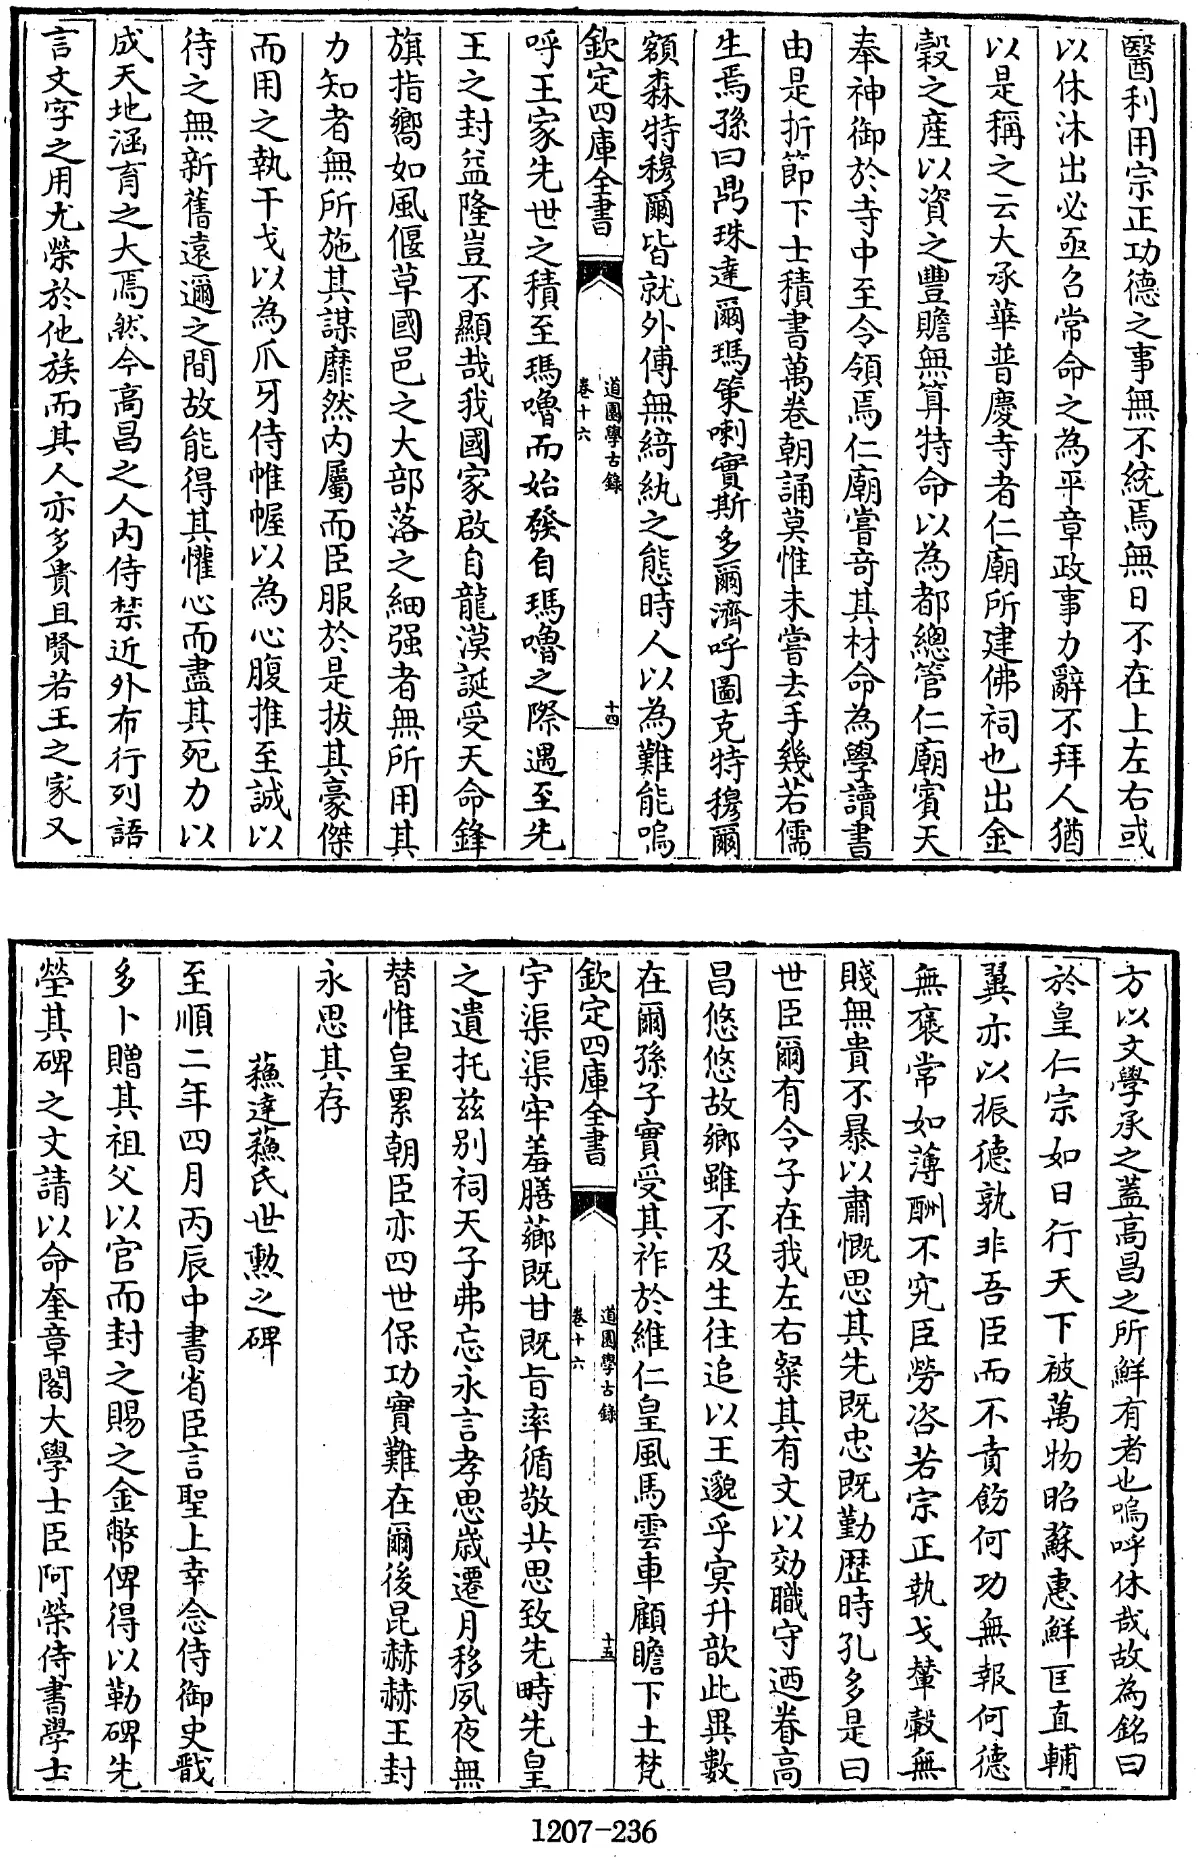 醫利用宗正功德之事無不統焉無日不在上左右或
以休沐出必亟召常命之為平章政事力辭不拜人猶
以是稱之云大承華普慶寺者仁廟所建佛祠也出金
穀之産以資之豐贍無算特命以為都總管仁廟賓天
奉神御於寺中至今領焉仁廟嘗竒其材命為學讀書
由是折節下士積書萬卷朝誦莫惟未嘗去手幾若儒
生焉孫曰鼎珠達爾瑪策喇實斯多爾濟呼圖克特穆爾
額森特穆爾皆就外傅無綺紈之態時人以為難能嗚
欽定四庫全書
道園學古錄
卷十六
十四
呼王家先世之積至瑪嚕而始發自瑪嚕之際遇至先
王之封益隆豈不顯哉我國家啟自龍漠誕受天命鋒
旗指嚮如風偃草國邑之大部落之細强者無所用其
力知者無所施其謀靡然内屬而臣服於是拔其豪傑
而用之執干戈以為爪牙侍帷幄以為心腹推至誠以
待之無新舊遠邇之間故能得其懽心而盡其死力以
成天地涵育之大焉然今高昌之人内侍禁近外布行列語
言文字之用尤榮於他族而其人亦多貴且賢若王之家又
方以文學承之蓋高昌之所鮮有者也嗚呼休哉故為銘曰
於皇仁宗如日行天下被萬物昭蘇惠鮮匡直輔
翼亦以振德孰非吾臣而不賁飭何功無報何德
無褒常如薄酬不究臣勞咨若宗正執戈輦轂無
賤無貴不暴以肅慨思其先既忠既勤歴時孔多是曰
世臣爾有令子在我左右粲其有文以効職守迺眷高
昌悠悠故鄉雖不及生往追以王邈乎冥升歆此異數
在爾孫子實受其祚於維仁皇風馬雲車顧瞻下土梵
欽定四庫全書
道園學古錄
卷十六
十五
宇渠渠牢羞膳薌既甘既旨率循敬共思致先時先皇
之遺托兹别祠天子弗忘永言孝思歳遷月移夙夜無
替惟皇累朝臣亦四世保功實難在爾後昆赫赫王封
永思其存
蘓達蘓氏世勲之碑
至順二年四月丙辰中書省臣言聖上幸念侍御史戩
多卜贈其祖父以官而封之賜之金幣俾得以勒碑先
塋其碑之文請以命奎章閣大學士臣阿榮侍書學士
1207-236